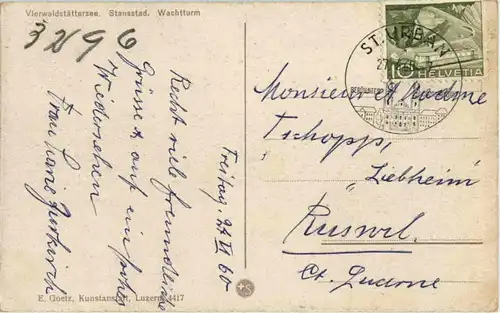 Vierwaldstättersee. Stansstad. Wachtturm
32196
Freitag, 24 VI 60
Recht viele freundliche
Grüsse & auf ein frohes
Wiedersehen
Frau Marie
ST. URBAN
10 HELVETIA
Monsieur et Madame
Tschopp,
"Liebheim"
Ruswil.
Ct. Lucerne
E. Goetz, Kunstanstalt, Luzern 4417